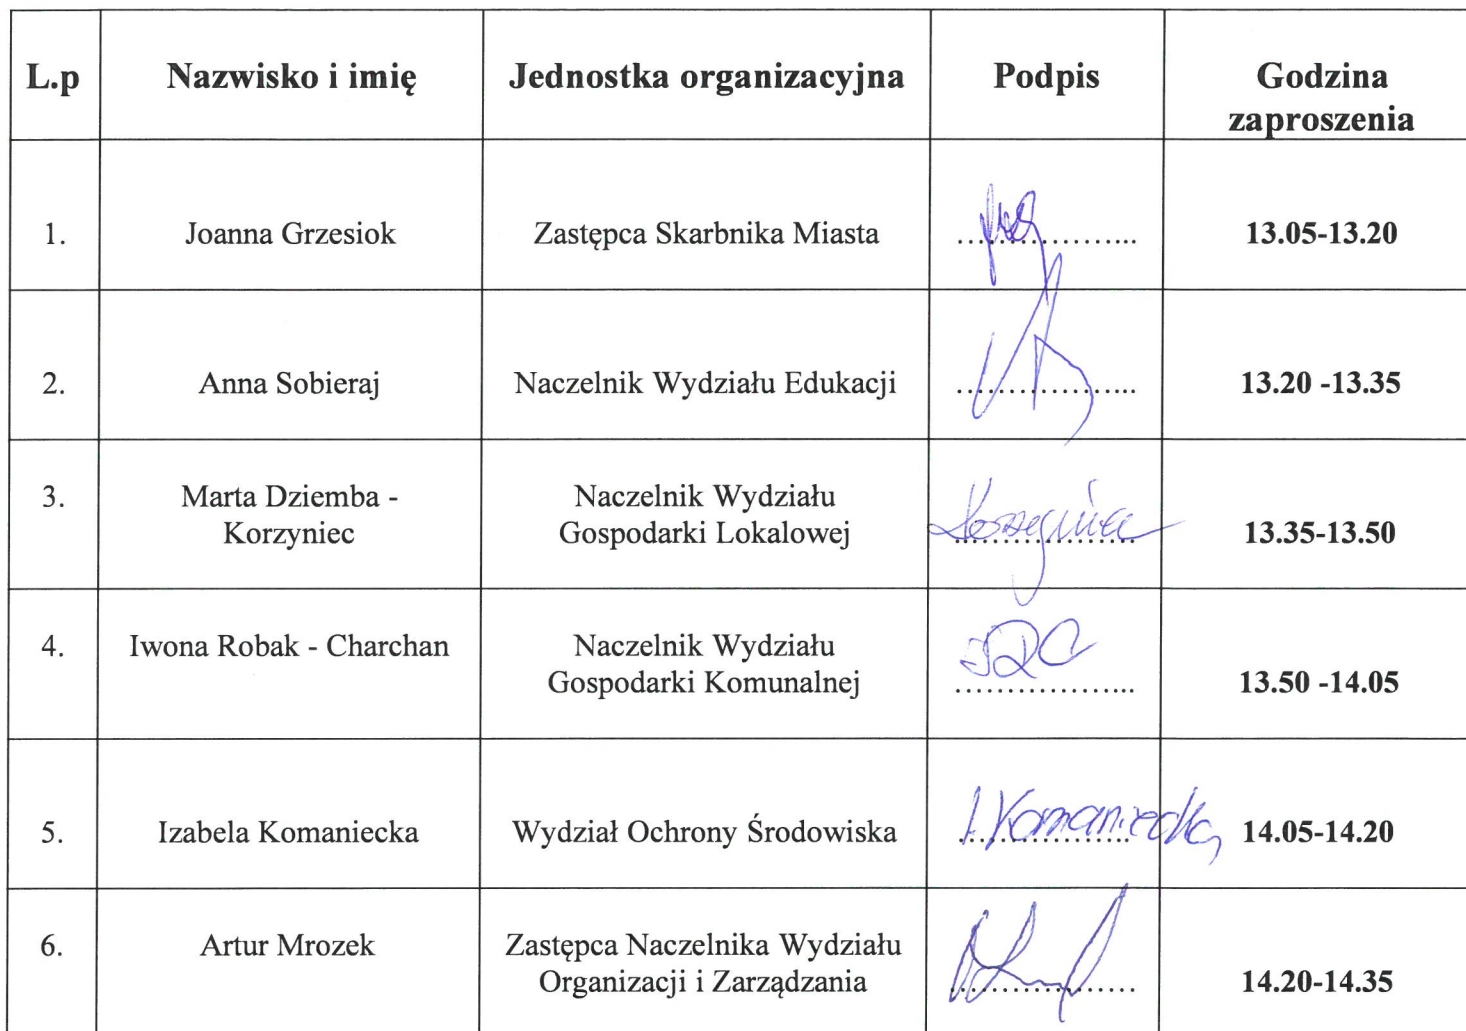 L.p Nazwisko i imię Jednostka organizacyjna Podpis Godzina
zaproszenia
1. Joanna Grzesiok Zastępca Skarbnika Miasta .................. 13.05-13.20
2. Anna Sobieraj Naczelnik Wydziału Edukacji .................. 13.20 -13.35
3. Marta Dziemba - Naczelnik Wydziału
Korzyniec Gospodarki Lokalowej .................. 13.35-13.50
4. Iwona Robak - Charchan Naczelnik Wydziału
Gospodarki Komunalnej .................. 13.50 -14.05
5. Izabela Komaniecka Wydział Ochrony Środowiska I. Komaniecka 14.05-14.20
6. Artur Mrozek Zastępca Naczelnika Wydziału
Organizacji i Zarządzania .................. 14.20-14.35